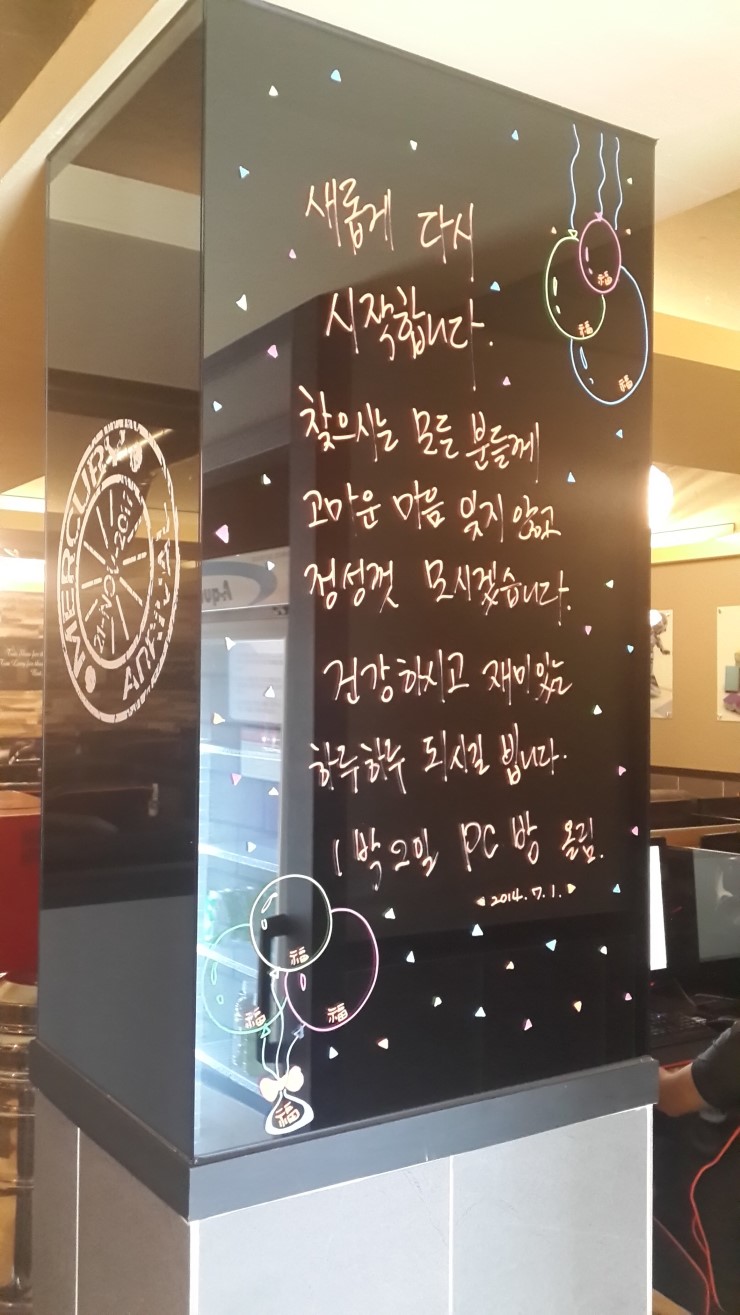 새롭게 다시
시작합니다.
찾으시는 모든 분들께
고마운 마음 잊지 않고
정성껏 모시겠습니다.
건강하시고 재미있는
하루하루 되시길 빕니다.
1박2일 PC방 올림.
2014.7.1.
福
福
福
福
福
福
福
MERCURY
21-NOV-2011